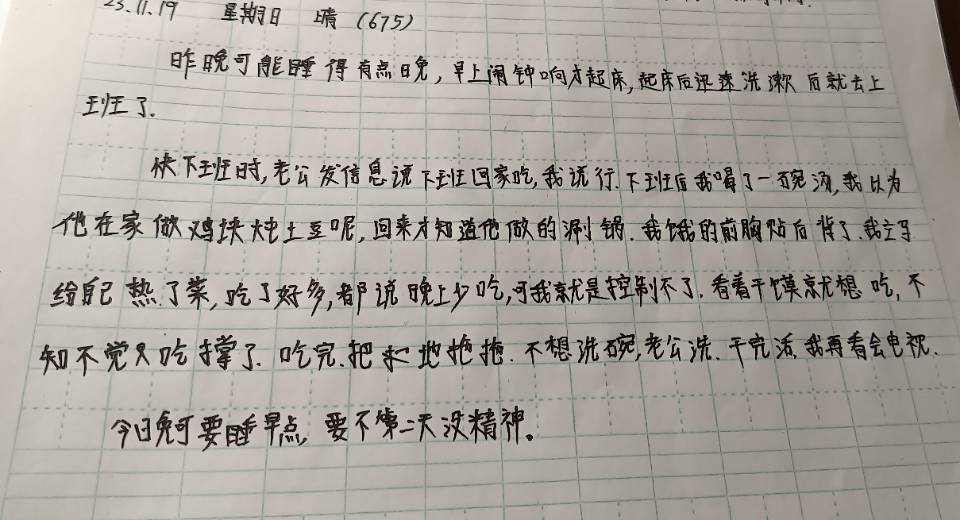 23.11.19 星期日 晴 (675)
昨晚可能睡得有点晚,早上闹钟响才起床,起床后迅速洗漱后就去上
班了.
快下班时,老公发信息说下班回家吃,我说行.下班后我喝了一碗汤,我以为
他在家做鸡块炖土豆呢,回来才知道他做的涮锅.我饿的前胸贴后背了.我立马
给自己热了菜,吃了好多,都说晚上少吃,可我就是控制不了.看着干馍就想吃,不
知不觉又吃撑了.吃完.把地拖拖.不想洗碗,老公洗.干完活,我再看会电视.
今日晚可要睡早点,要不第二天没精神。